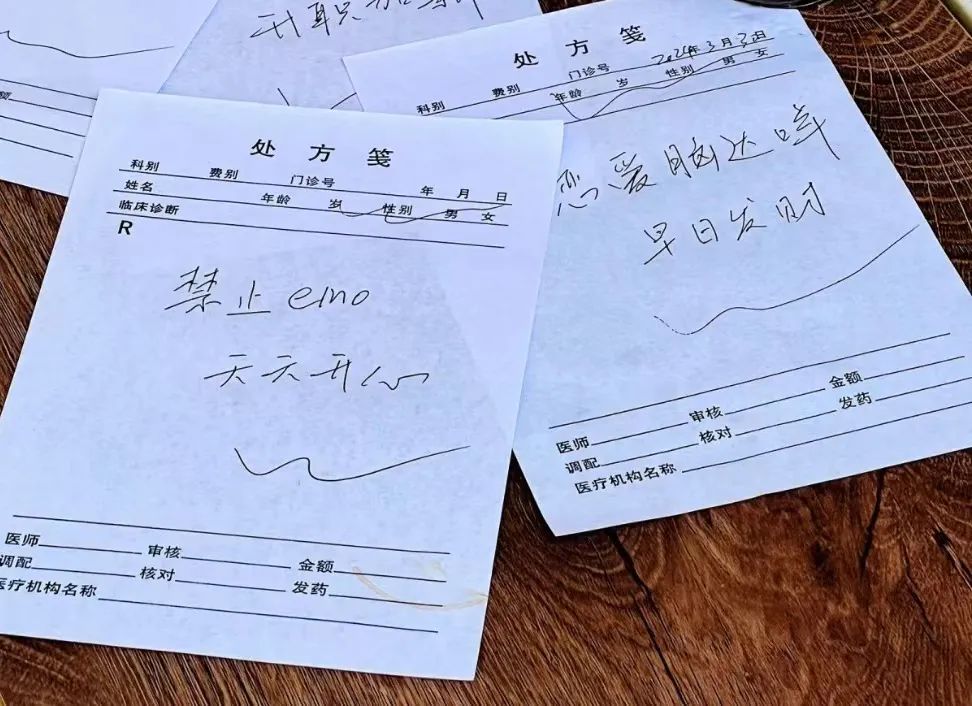 升职加薪
额
处方笺
科别 费别 门诊号 年 月 日
姓名 年龄 岁 性别 男 女
临床诊断
R
禁止emo
天天开心
医师 审核 金额
调配 核对 发药
医疗机构名称
处方笺
科别 费别 门诊号 2024年3月3日
年龄 岁 性别 男 女
恋爱脑达咩
早日发财
医师 审核 金额
调配 核对 发药
医疗机构名称